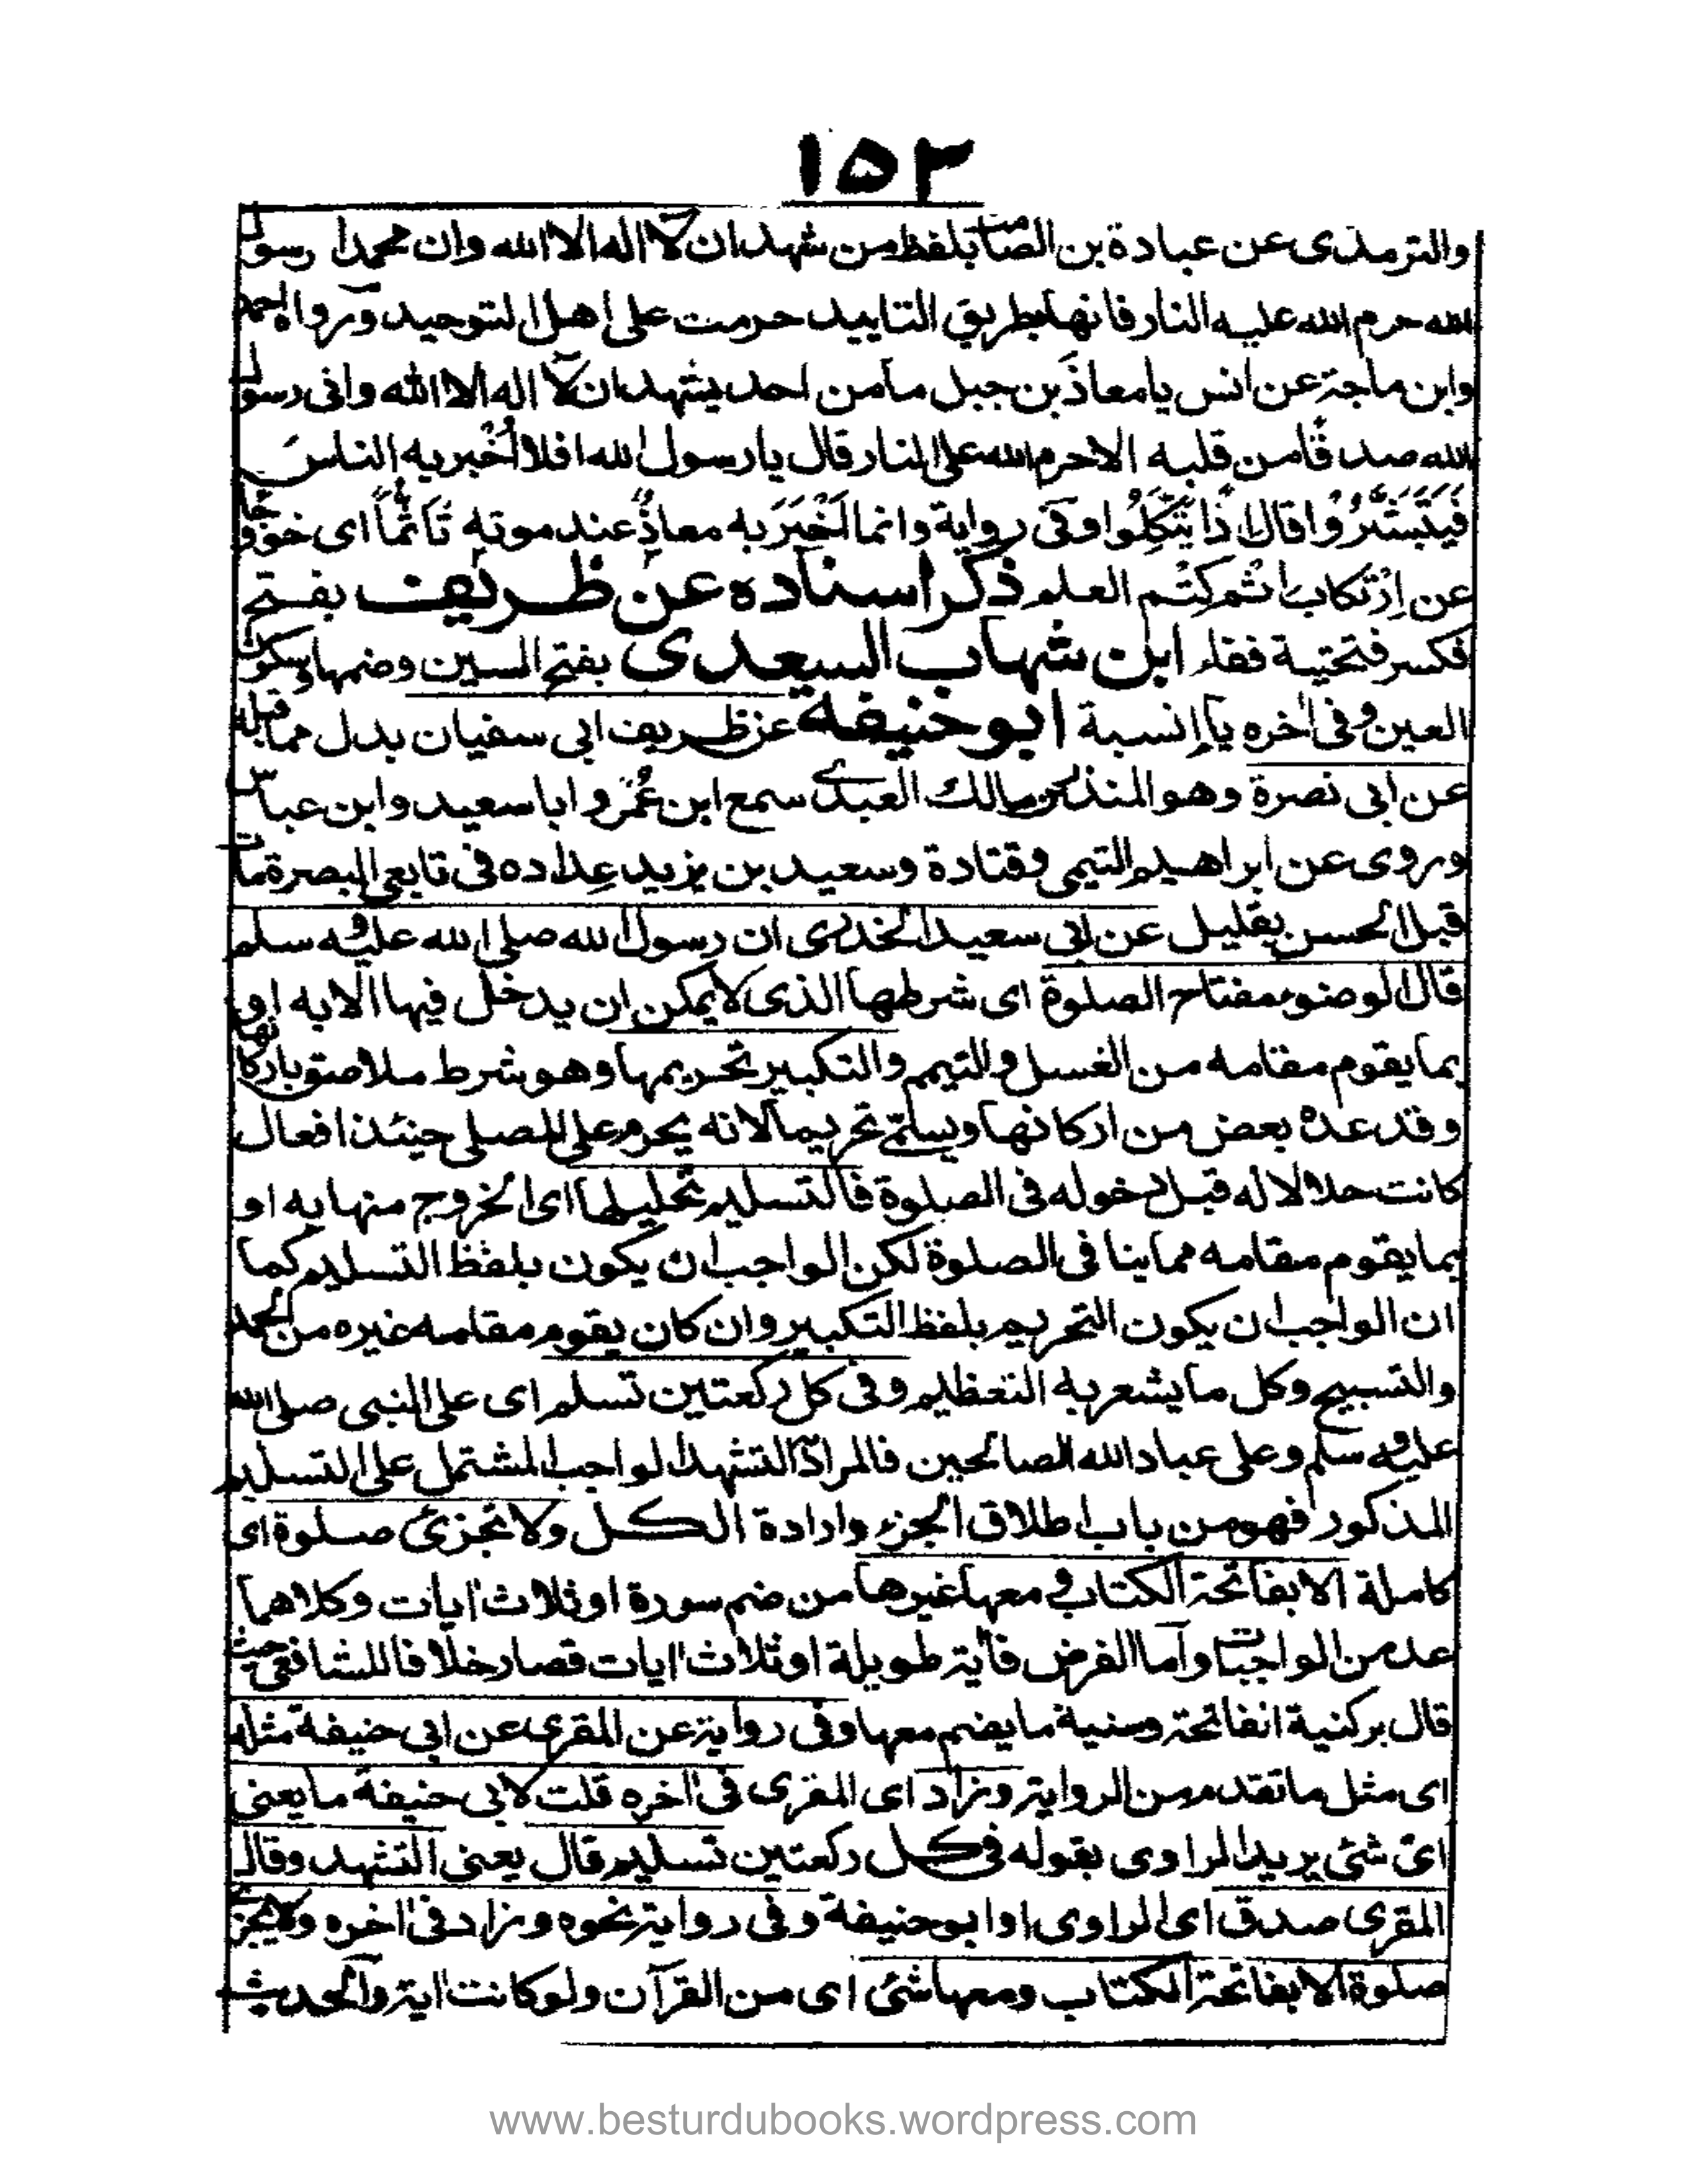 ١٥٣
والترمذى عن عبادة بن الصامت بلفظ من شهد ان لا اله الا الله وان محمدا رسول
الله حرم الله عليه النار فانها بطريق التابيد حرمت على اهل التوحيد ورواه احمد
وابن ماجة عن انس يا معاذ بن جبل ما من احد يشهد ان لا اله الا الله وانى رسول
الله صدقًا من قلبه الا حرم الله على النار قال يا رسول الله افلا اُخْبر به الناس
فَيَتَبَشَّرُوْا قال اذًا يَتَّكِلُوا وفى رواية وانما اَخْبَرَ به معاذٌ عند موته تَاَثُّمًا اى خوفا
عن اِرْتكاب اثم كَتْم العلم ذكر اسناده عن ظريف بفتح
فكسر فتحتية ففاء ابن شهاب السعدى بفتح السين وضمها وسكون
العين وفى اٰخره ياء نسبة ابو حنيفة عن ظريف ابى سفيان بدل مما قبله
عن ابى نصرة وهو المنذر بن مالك العبدى سمع ابن عُمَر وابا سعيد وابن عباس
وروى عن ابراهيم التيمى وقتادة وسعيد بن يزيد عِداده فى تابعى البصرة مات
قبل الحسن بقليل عن ابى سعيد الخدرى ان رسول الله صلى الله عليه وسلم
قال الوضوء مفتاح الصلوة اى شرطها الذى لا يمكن ان يدخل فيها الا به او
بما يقوم مقامه من الغسل والتيمم والتكبير تحريمها وهو شرط ملاصق باركانها
وقد عده بعض من اركانها ويسمّى تحريما لانه يحرم على المصلى حينئذ افعال
كانت حلالا له قبل دخوله فى الصلوة فالتسليم تحليلها اى الخروج منها به او
بما يقوم مقامه مما ينافى الصلوة لكن الواجب ان يكون بلفظ التسليم كما
ان الواجب ان يكون التحريم بلفظ التكبير وان كان يقوم مقامه غيره من الحمد
والتسبيح وكل ما يشعر به التعظيم وفى كل ركعتين تسلم اى على النبى صلى الله
عليه وسلم وعلى عباد الله الصالحين فالمراد التشهد الواجب المشتمل على التسليم
المذكور فهو من باب اطلاق الجزء وارادة الكل ولا تجزئ صلوة اى
كاملة الا بفاتحة الكتاب ومعها غيرها من ضم سورة او ثلاث اٰيات وكلاهما
عد من الواجبات وآما الفرض فاٰية طويلة او ثلاث اٰيات قصار خلافا للشافعى حيث
قال بركنية انفاتحة وسنية ما يضم معها وفى رواية عن المقرى عن ابى حنيفة مثله
اى مثل ما تقدم من الرواية وزاد اى المقرى فى اٰخره قلت لابى حنيفة ما يعنى
اىّ شئ يريد الراوى بقوله فى كل ركعتين تسليم قال يعنى التشهد وقال
المقرى صدق اى الراوى او ابو حنيفة وفى رواية نحوه وزاد فى اٰخره ولا يجزئ
صلوة الا بفاتحة الكتاب ومعها شئ اى من القرآن ولو كانت اٰية والحديث
www.besturdubooks.wordpress.com